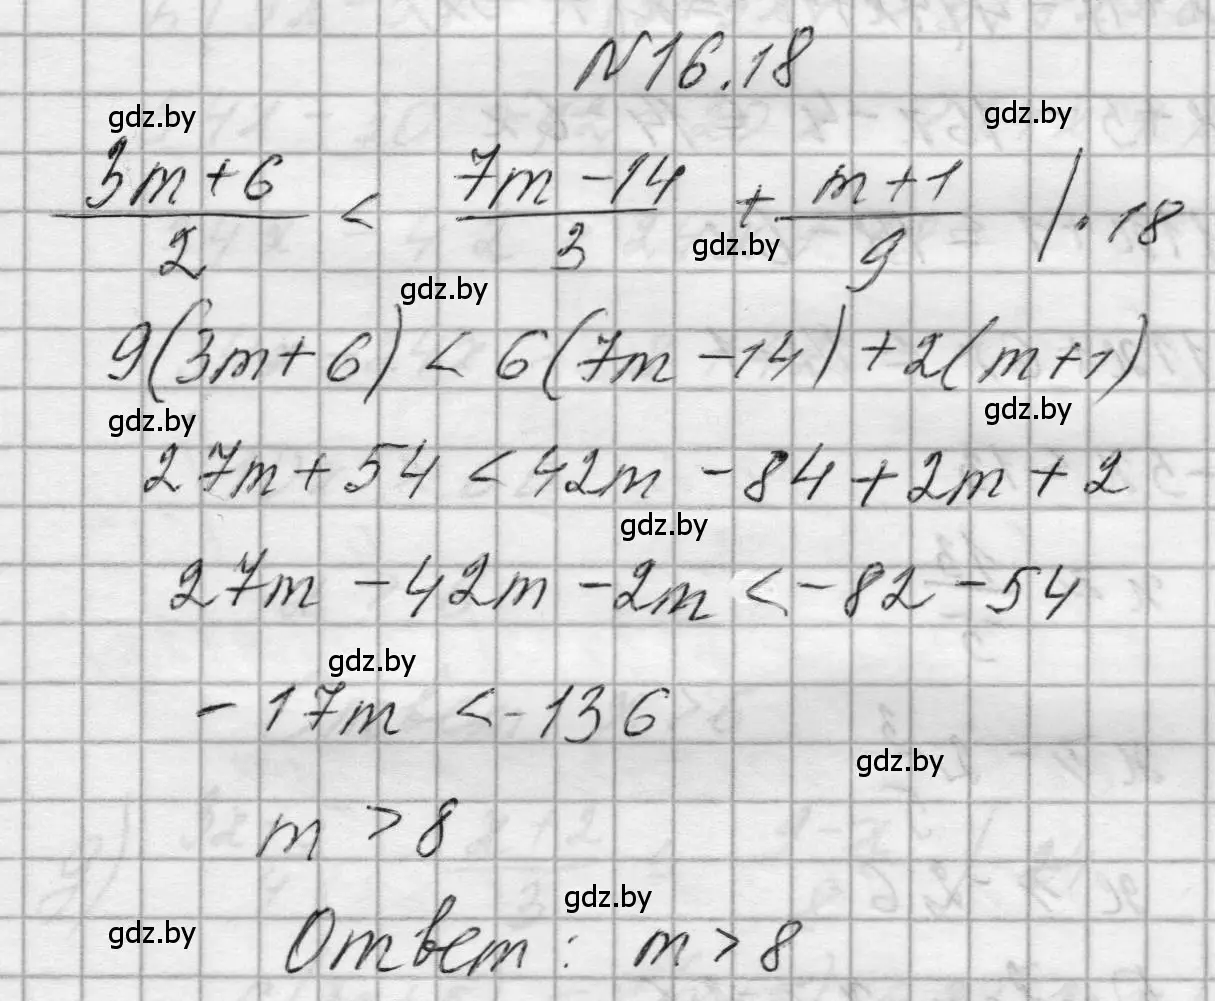 N16.18
gdz.by gdz.by
(3m+6)/2 < (7m-14)/3 + (m+1)/9 |·18
gdz.by
gdz.by
9(3m+6) < 6(7m-14)+2(m+1)
gdz.by gdz.by
27m+54 < 42m-84+2m+2
gdz.by
27m-42m-2m < -82-54
gdz.by
-17m < -136
gdz.by
m > 8
gdz.by
gdz.by
Ответ: m > 8